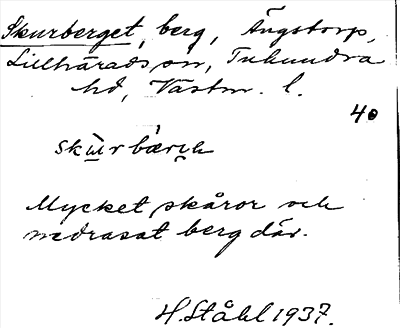 Skurberget, berg, Ängstorp,
Lillhärads sn, Tuhundra
hd, Västm. l.
40
skùr bærk
Mycket skåror och
nedrasat berg där.
H. Ståhl 1937.